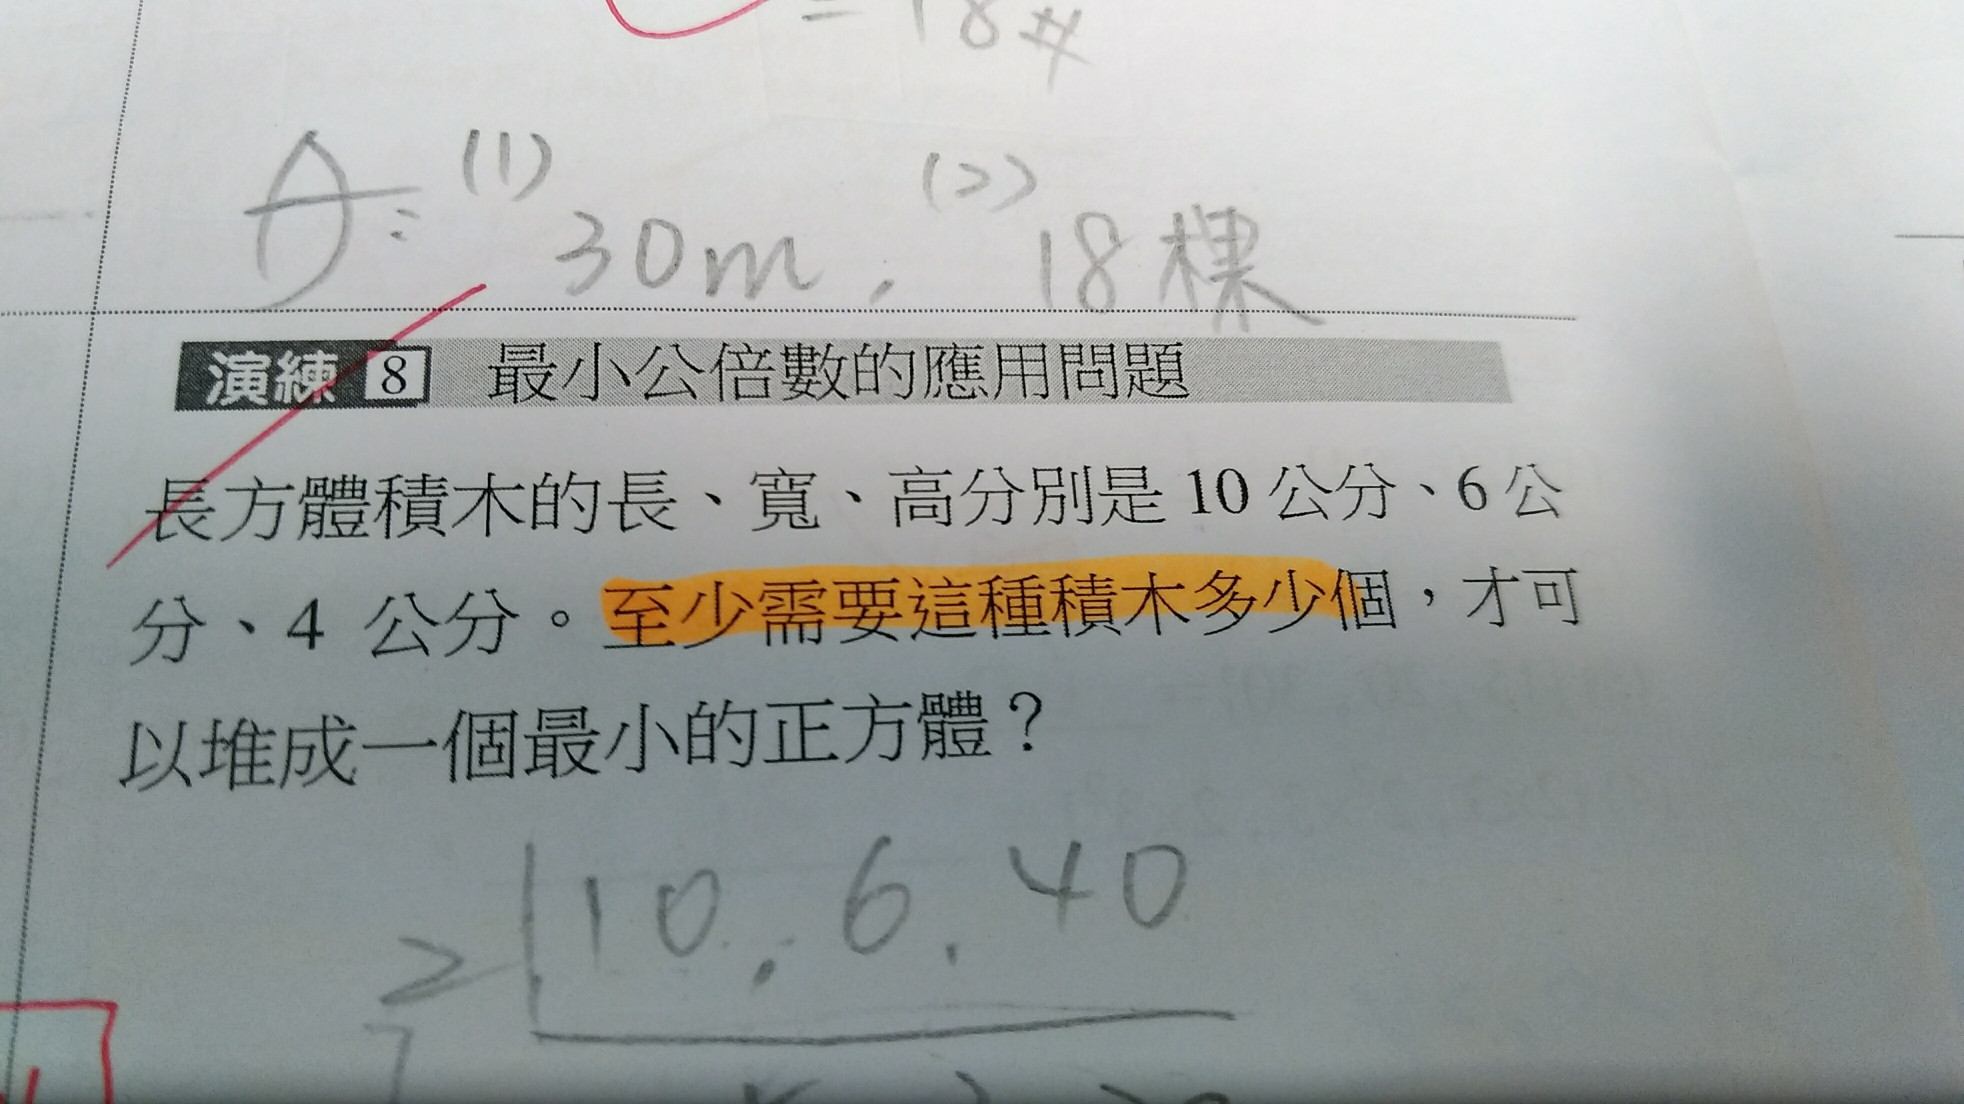 = 18#
A: (1) 30m, (2) 18棵
演練 8 最小公倍數的應用問題
長方體積木的長、寬、高分別是 10 公分、6 公
分、4 公分。至少需要這種積木多少個，才可
以堆成一個最小的正方體？
2 10, 6, 40